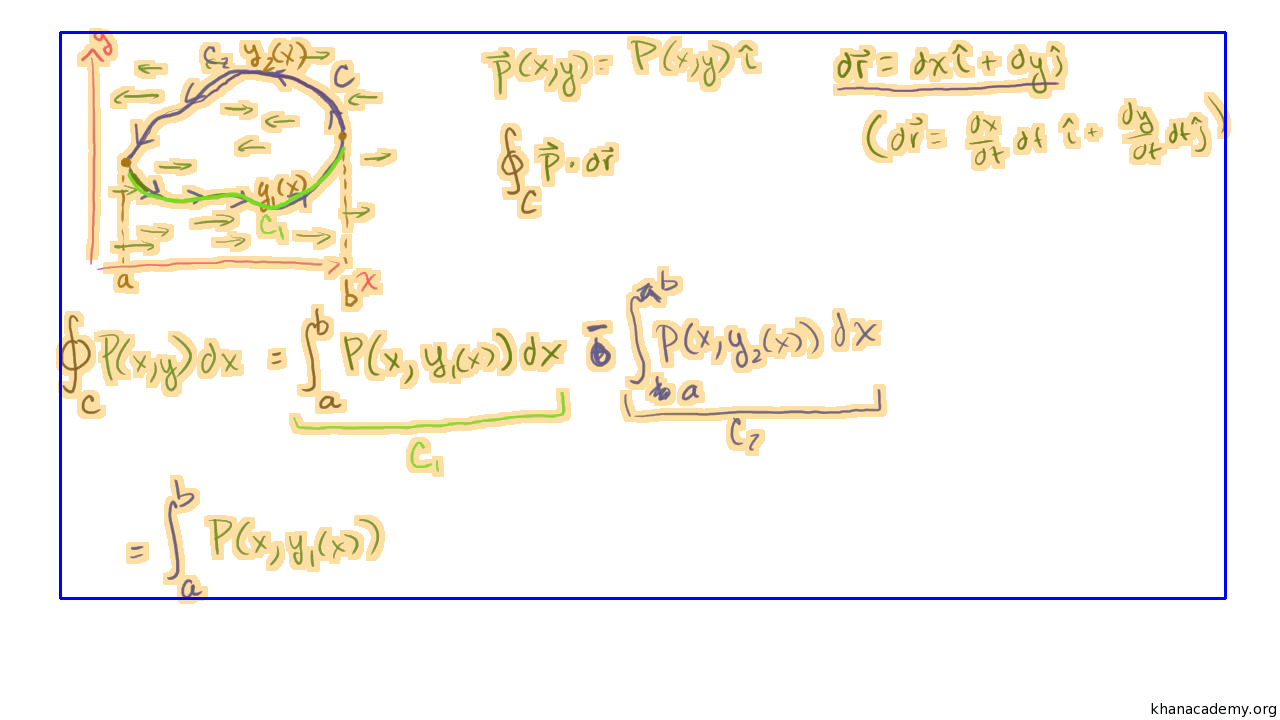 y
C₂ y₂(x)
C
y₁(x)
C₁
a b x
P⃗(x,y) = P(x,y) î
dr⃗ = dx î + dy ĵ
(dr⃗ = dx/dt dt î + dy/dt dt ĵ)
∮_C P⃗ · dr⃗
∮_C P(x,y) dx = ∫_a^b P(x, y₁(x)) dx − ∫_a^b P(x, y₂(x)) dx
C₁ C₂
= ∫_a^b P(x, y₁(x))
khanacademy.org